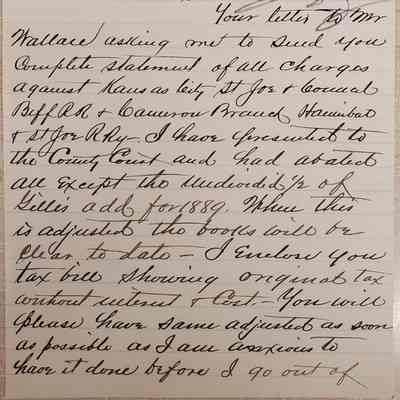 Your letter to Mr
Wallace asking me to send you
Complete statement of all charges
against Kansas City St Joe & Council
Bluff RR & Cameron Branch Hannibal
& St Joe R Ry - I have presented to
the County Court and had abated
all Except the Undivided ½ of
Gillis add for 1889. When this
is adjusted the books will be
clear to date - I Enclose you
tax bill showing original tax
without interest & Cost - You will
please have same adjusted as soon
as possible as I am anxious to
have it done before I go out of